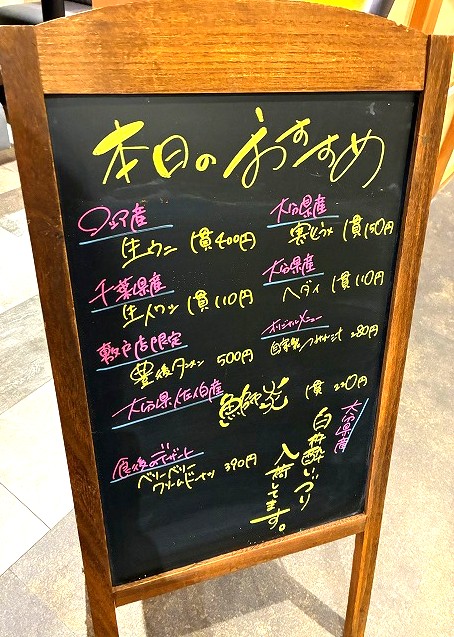 本日のおすすめ
ロシア産
生ウニ 1貫400円
千葉県産
生イワシ 1貫110円
敷戸店限定
豊後タンメン 500円
大分県佐伯産
1貫 220円
食後のデザート
ベリーベリー
クリームドーナツ 390円
大分県産
1貫150円
大分県産
ヘダイ 1貫110円
オリジナルメニュー
自家製 280円
大分県産
入荷してます。